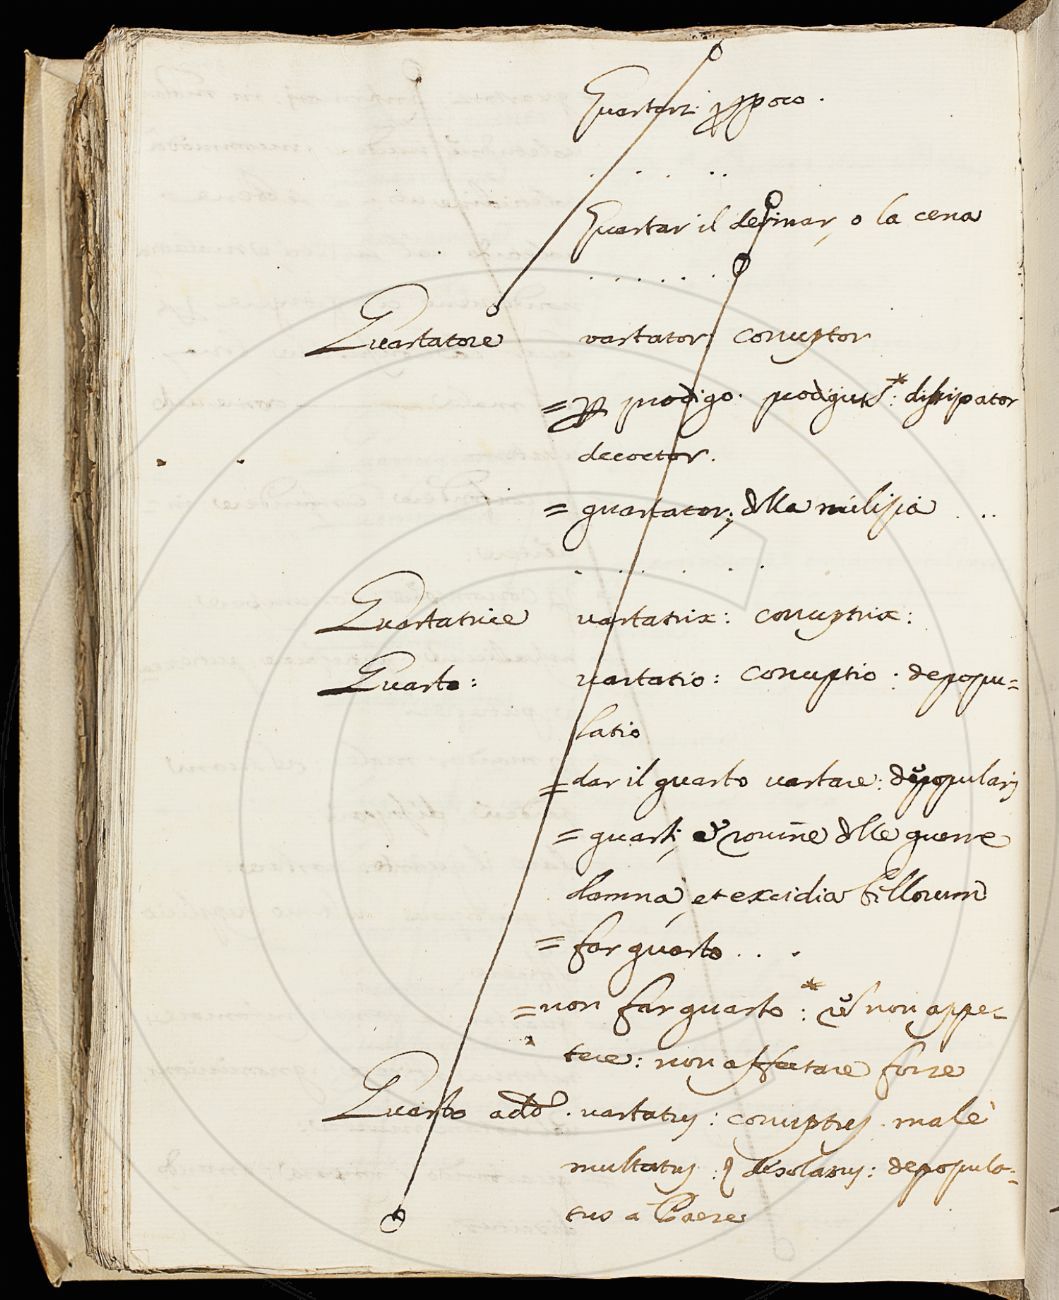 Guastarsi p̱ poco.
. . . . .
Guastar il desinar, o la cena
. . . . . .
Guastatore vastator: corruptor
= p̱ prodigo. prodigus*: dissipator
decoctor.
= guastator: della milisia . ..
. . . . . .
Guastatrice vastatrix: corruptrix:
Guasto: vastatio: corruptio. depopu=
latio
= dar il guasto vastare: depopulari
= guasti, et rouine delle guerre
damna, et excidia bellorum
= far guasto . . .
= non far guasto*: non appe=
tere: non affectare forse
Guasto add. vastatus: corruptus. male
multatus: desolatus: depopula=
tus a